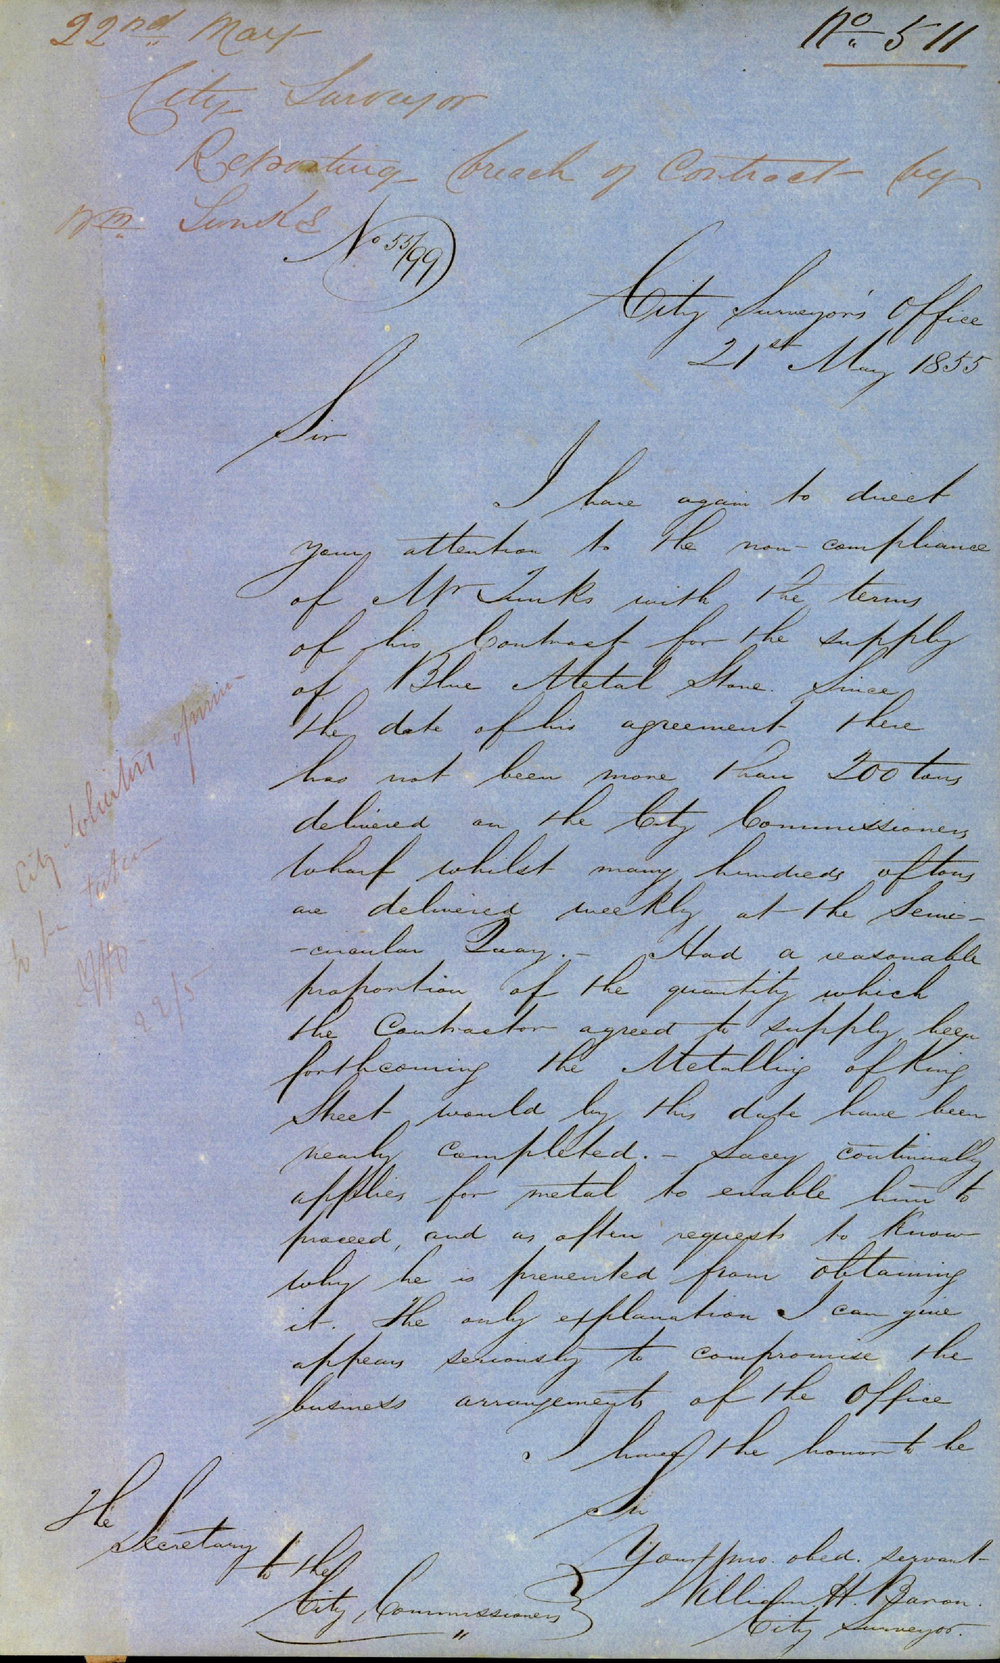 22nd May
No 511
City Surveyor
Reporting breach of Contract by
Wm Tunks
No 55/99
City Surveyor's Office
21st May 1855
Sir
I have again to direct
your attention to the non-compliance
of Mr Tunks with the terms
of his Contract for the supply
of Blue Metal Stone. Since
the date of his agreement there
has not been more than 200 tons
delivered on the City Commissioners
Wharf whilst many hundreds of tons
are delivered weekly at the Semi-
-circular Quay. - Had a reasonable
proportion of the quantity which
the Contractor agreed to supply been
forthcoming the Metalling of King
Street would by this date have been
nearly completed. - Lacey continually
applies for metal to enable him to
proceed, and as often requests to know
why he is prevented from obtaining
it. The only explanation I can give
appears seriously to compromise the
business arrangements of the Office
I have the honor to be
Sir
Your mo. obed. servant
William H. Baron.
City Surveyor.
The Secretary
to the
City Commissioners
City Solicitors opinion
to be taken
22/5